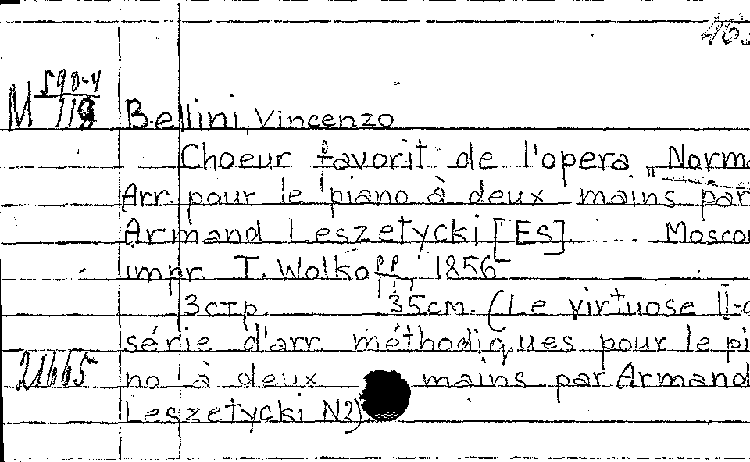 463
M 590-4/118 Bellini, Vincenzo
Choeur favorit de l'opera „Norma
Arr. pour le piano à deux mains par
Armand Leszetycki [Es]. Moscou
impr. T. Wolkoff, 1856
3 стр. 35 см. (Le virtuose II-
série d'arr. méthodiques pour le pi
21665 no à deux mains par Armand
Leszetycki N2)